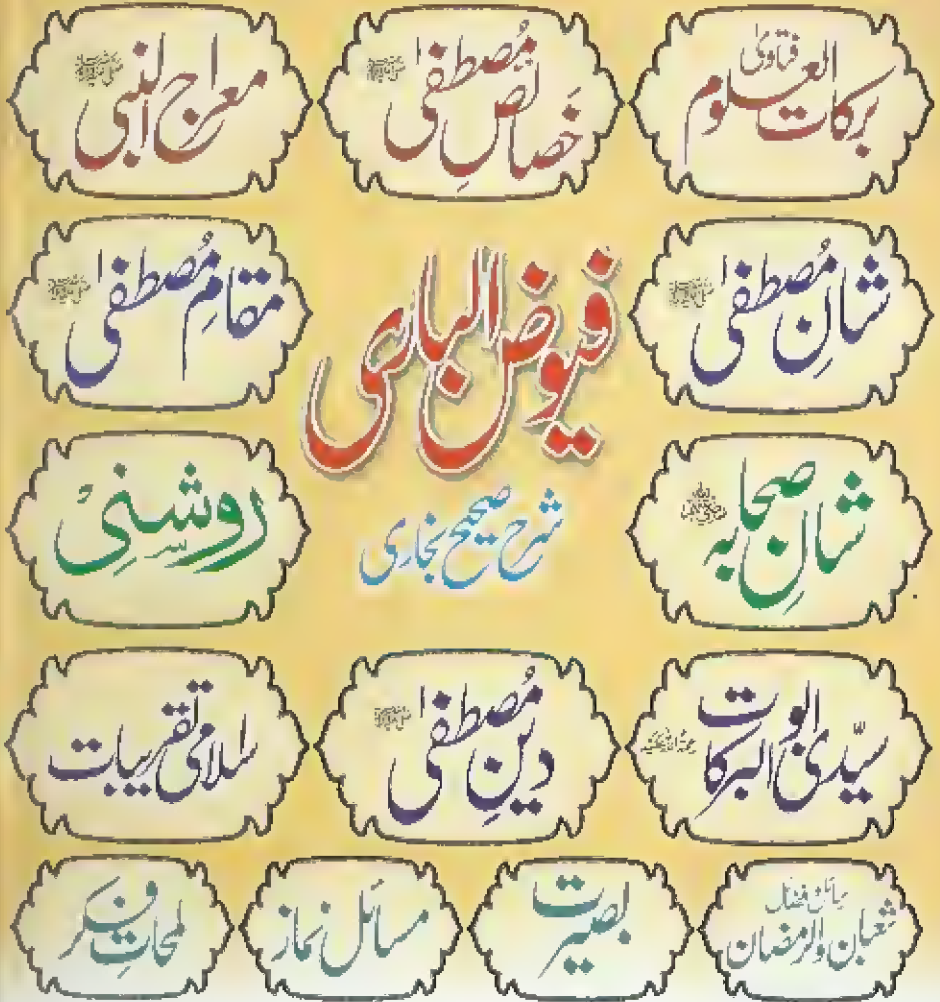 فتاویٰ برکات العلوم
خصائص مصطفیٰ ﷺ
معراج النبی ﷺ
شانِ مصطفیٰ ﷺ
فیوض الباری
مقامِ مصطفیٰ ﷺ
شرح صحیح بخاری
شانِ صحابہ
روشنی
سیّدی ابوالبرکات
دینِ مصطفیٰ ﷺ
اسلامی تقریبات
شعبان والرمضان
بصیرت
مسائل نماز
لمحاتِ فکر